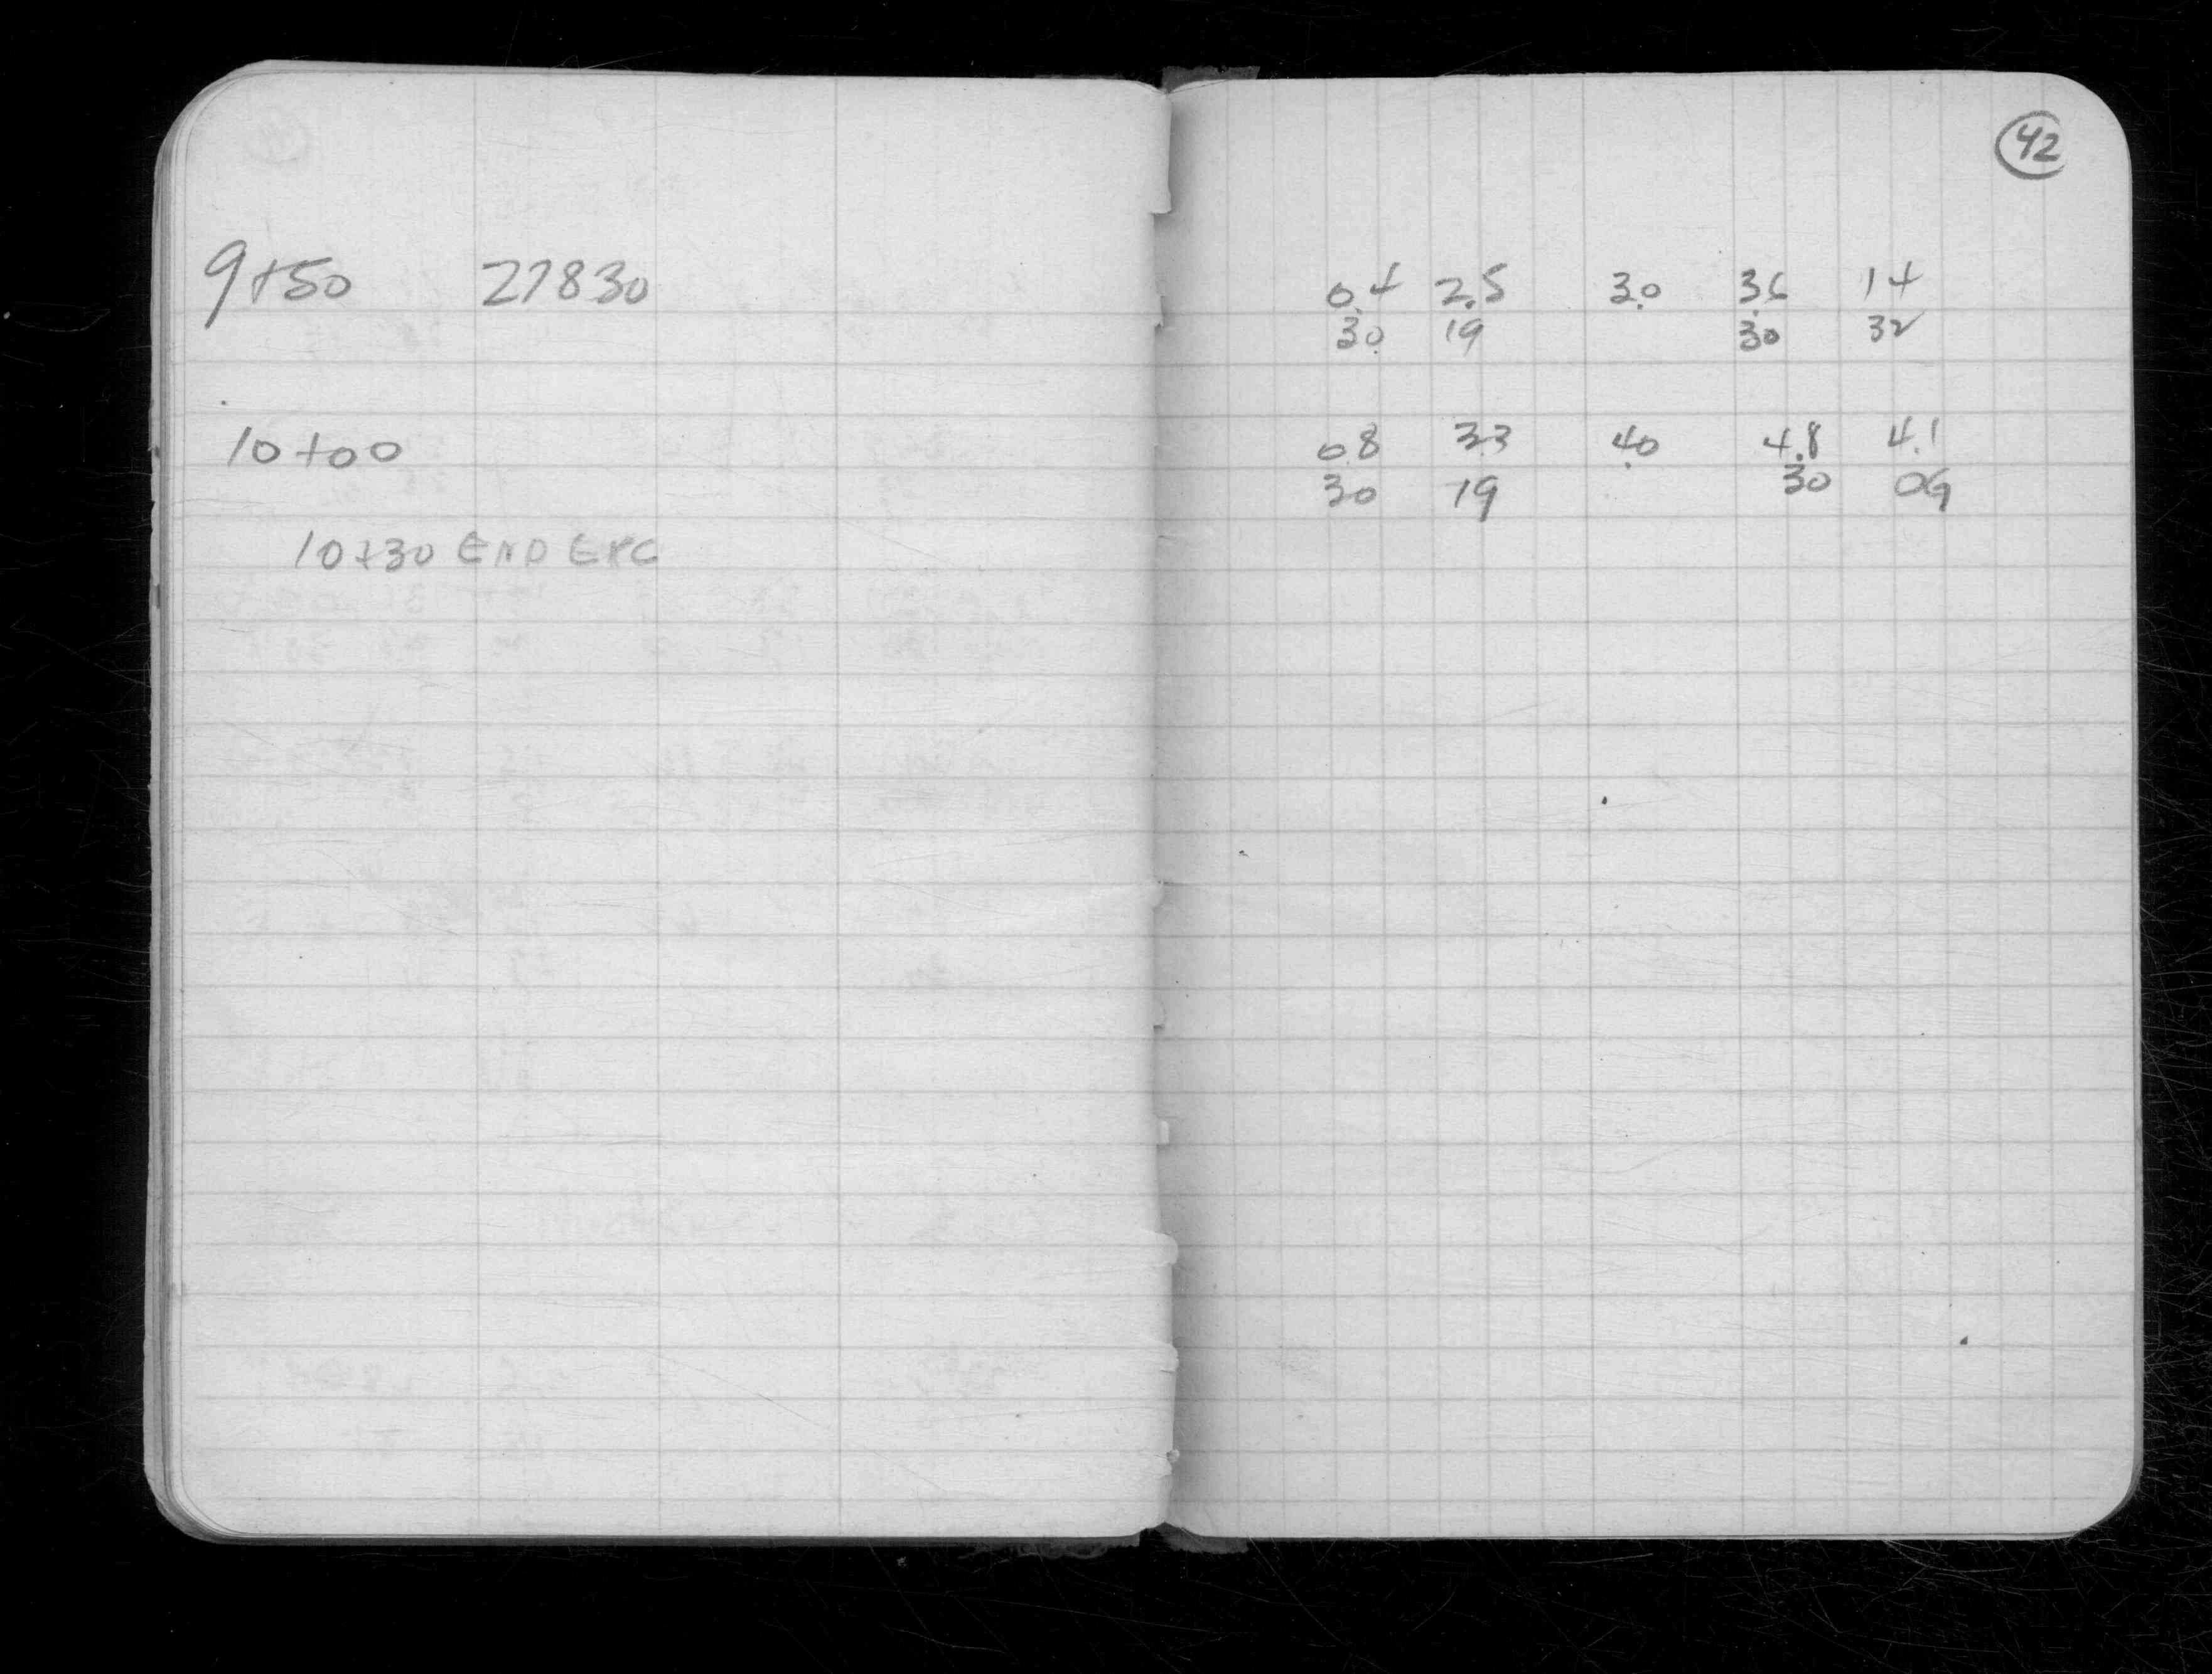 42
9+50 27830
0.4 2.5 3.0 3.6 1 4
30 19 30 32
10+00
0.8 3.3 4.0 4.8 4.1
30 19 30 OG
10+30 END EXC